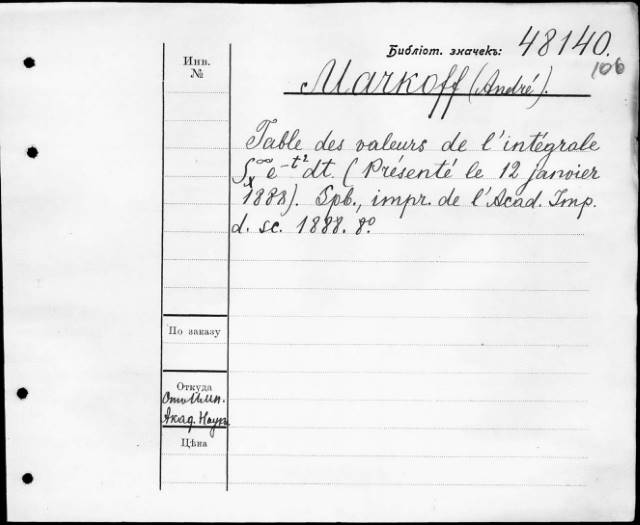 Библіот. значекъ: 48140.
106
Инв.
№
Markoff (André).
Table des valeurs de l'intégrale
∫ₓ^∞ e^-t² dt. (Présenté le 12 janvier
1888). Spb., impr. de l'Acad. Imp.
d. sc. 1888. 8°.
По заказу
Откуда
Отъ Имп.
Акад. Наукъ
Цѣна